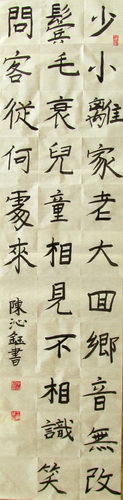 少小離家老大回鄉音無改
鬢毛衰兒童相見不相識笑
問客從何處來
陳沁鈺書